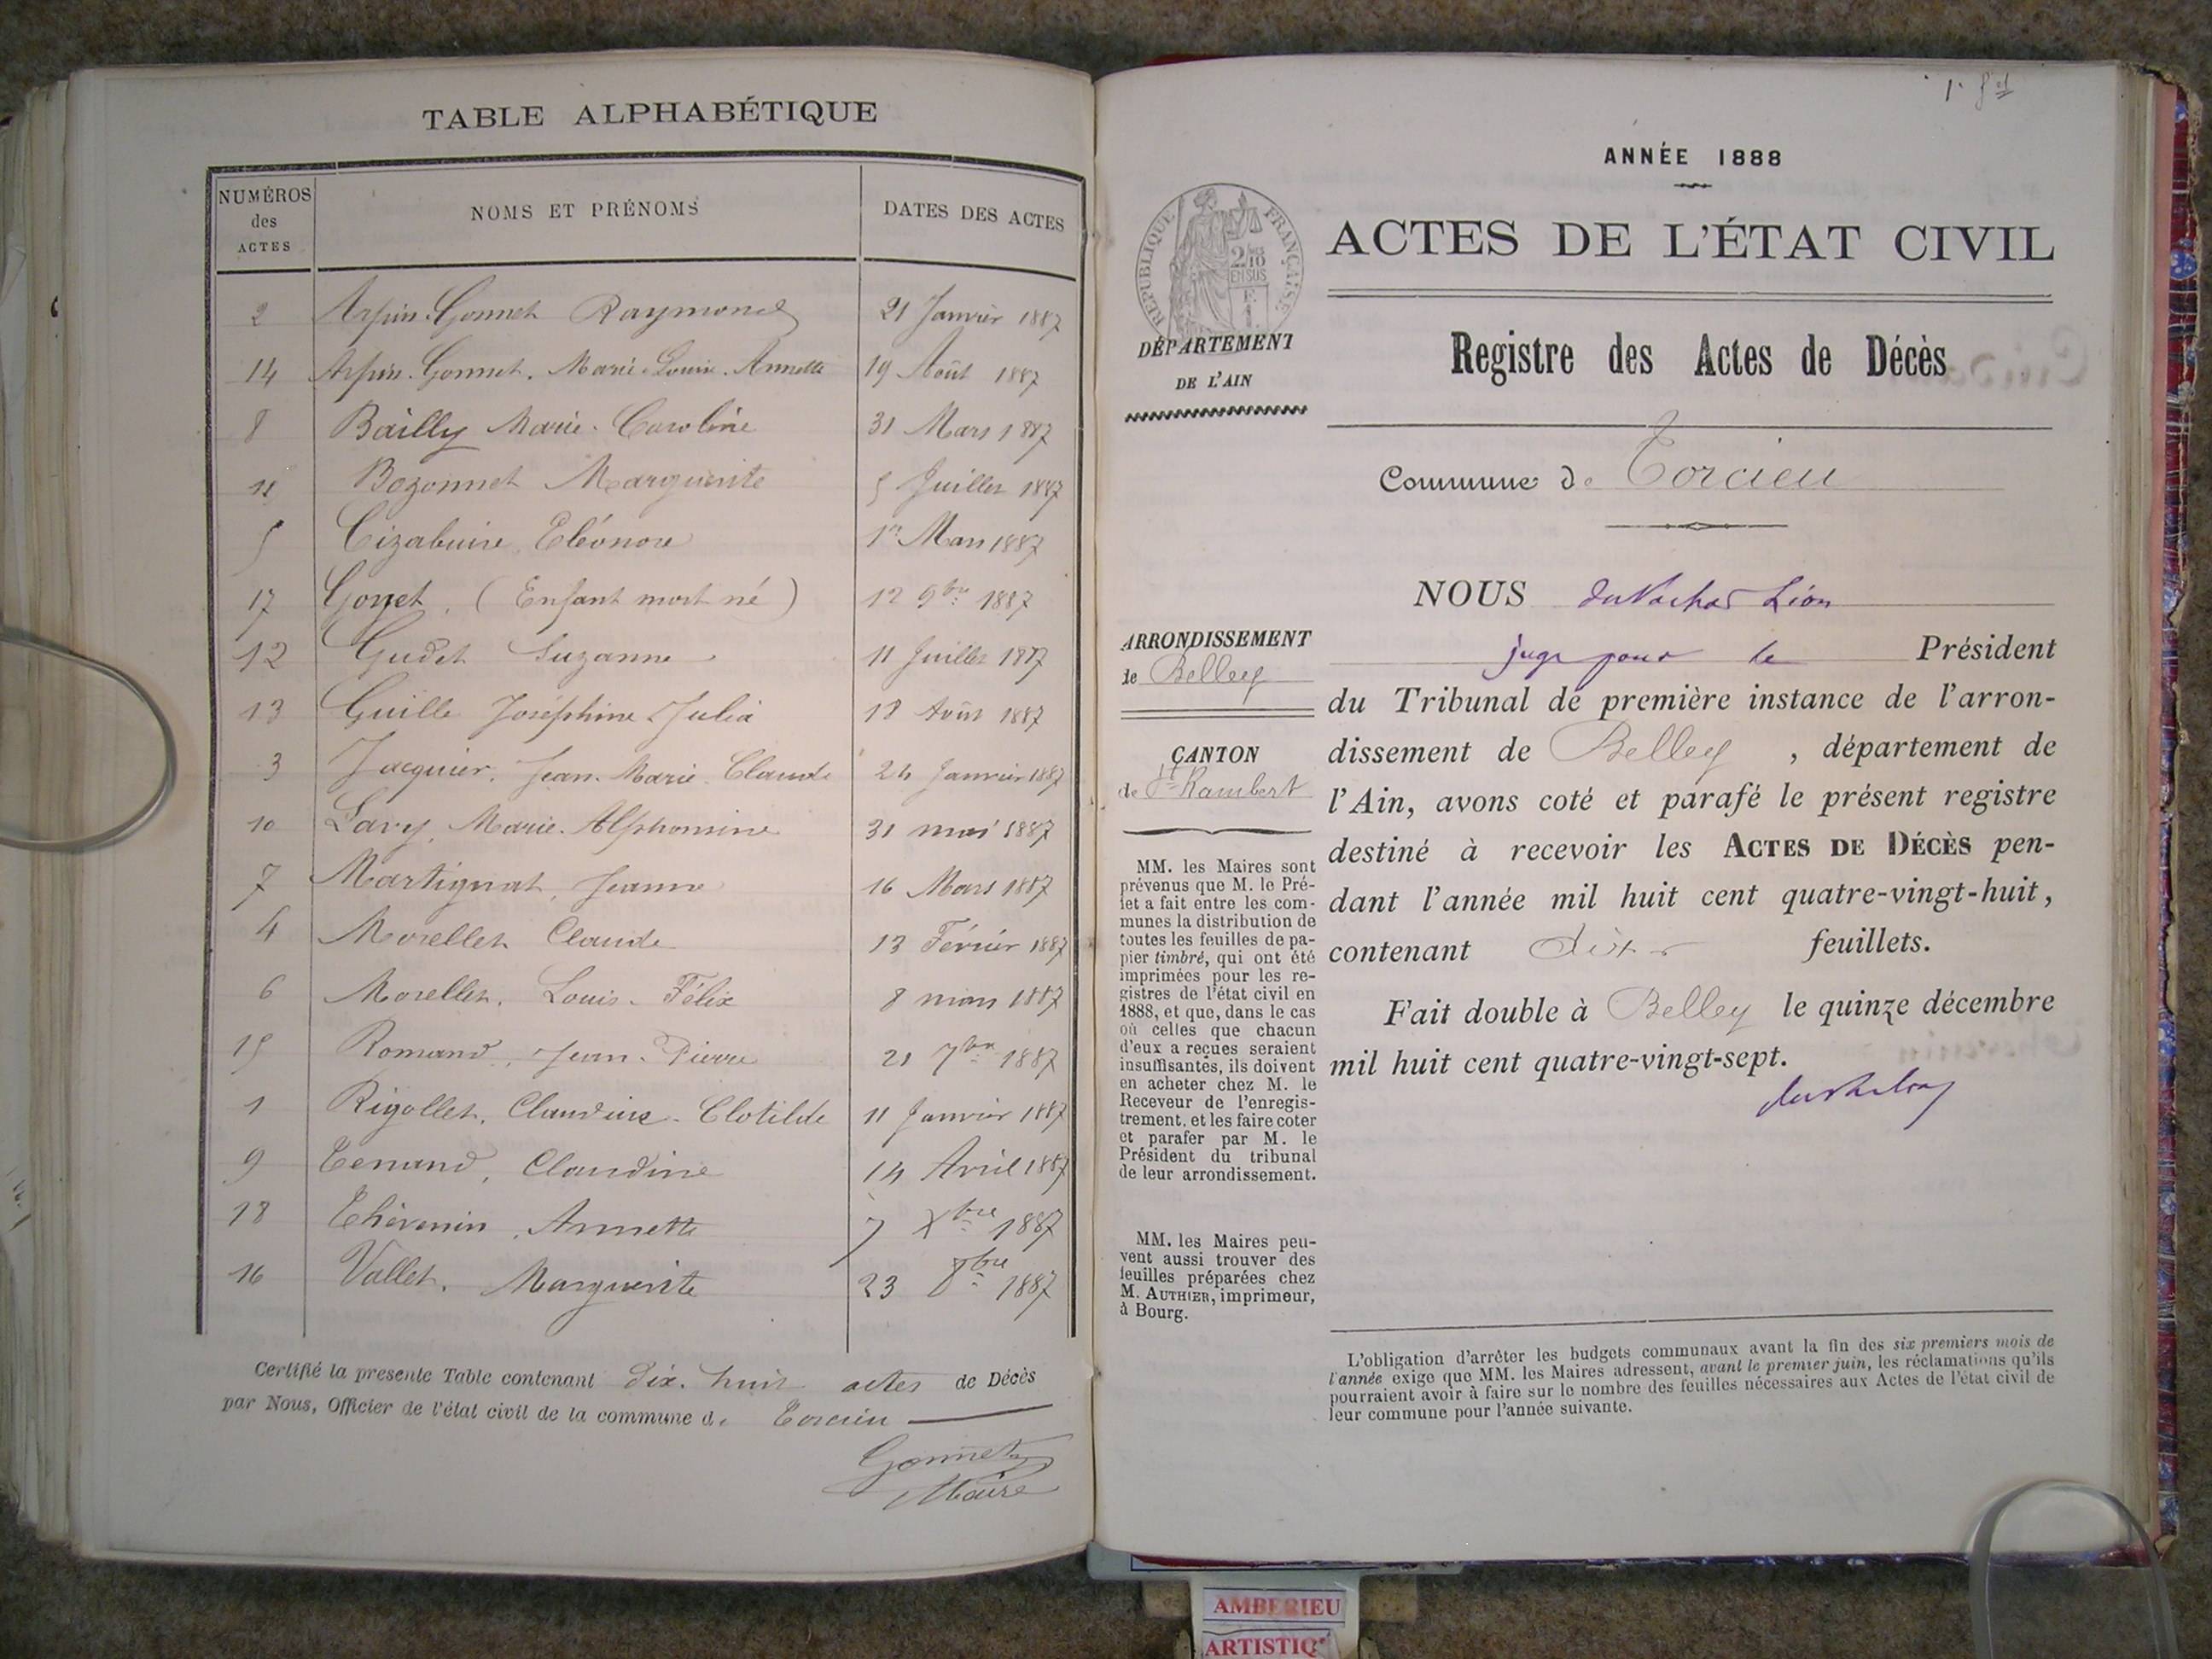 TABLE ALPHABÉTIQUE
NUMÉROS des ACTES NOMS ET PRÉNOMS DATES DES ACTES
2 Arpin-Gonnet Raymond 21 Janvier 1887
14 Arpin-Gonnet. Marie-Louise-Annette 19 Août 1887
8 Bailly Marie-Caroline 31 Mars 1887
11 Bozonnet Marguerite 5 Juillet 1887
5 Cizabuire, Eléonore 1er Mars 1887
17 Goyet, (Enfant mort né) 12 9bre 1887
12 Gudet Suzanne 11 Juillet 1887
13 Guille Joséphine Julia 18 Août 1887
3 Jacquier, Jean-Marie Claude 24 Janvier 1887
10 Lavy, Marie-Alphonsine 31 mai 1887
7 Martignat, Jeanne 16 Mars 1887
4 Morellet Claude 13 Février 1887
6 Morellet, Louis-Félix 8 mars 1887
15 Romand, Jean-Pierre 21 7bre 1887
1 Rigollet, Claudine-Clotilde 11 Janvier 1887
9 Tenand, Claudine 14 Avril 1887
18 Thévenin, Annette 7 Xbre 1887
16 Vallet, Marguerite 23 8bre 1887
Certifié la présente Table contenant dix-huit actes de Décès
par Nous, Officier de l'état civil de la commune de Torcieu
Gonnet
Maire
ANNÉE 1888
RÉPUBLIQUE FRANÇAISE
2/10 EN SUS
ACTES DE L'ÉTAT CIVIL
DÉPARTEMENT
DE L'AIN
Registre des Actes de Décès
Commune de Torcieu
ARRONDISSEMENT
de Belley
CANTON
de St Rambert
MM. les Maires sont
prévenus que M. le Pré-
fet a fait entre les com-
munes la distribution de
toutes les feuilles de pa-
pier timbré, qui ont été
imprimées pour les re-
gistres de l'état civil en
1888, et que, dans le cas
où celles que chacun
d'eux a reçues seraient
insuffisantes, ils doivent
en acheter chez M. le
Receveur de l'enregis-
trement, et les faire coter
et parafer par M. le
Président du tribunal
de leur arrondissement.
MM. les Maires peu-
vent aussi trouver des
feuilles préparées chez
M. AUTHIER, imprimeur,
à Bourg.
NOUS Léon
juge pour le Président
du Tribunal de première instance de l'arron-
dissement de Belley, département de
l'Ain, avons coté et parafé le présent registre
destiné à recevoir les ACTES DE DÉCÈS pen-
dant l'année mil huit cent quatre-vingt-huit,
contenant feuillets.
Fait double à Belley le quinze décembre
mil huit cent quatre-vingt-sept.
L'obligation d'arrêter les budgets communaux avant la fin des six premiers mois de
l'année exige que MM. les Maires adressent, avant le premier juin, les réclamations qu'ils
pourraient avoir à faire sur le nombre des feuilles nécessaires aux Actes de l'état civil de
leur commune pour l'année suivante.
AMBERIEU
ARTISTIQ